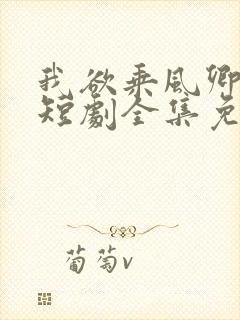 我欲乘风卿
短劇全集免
葡萄v